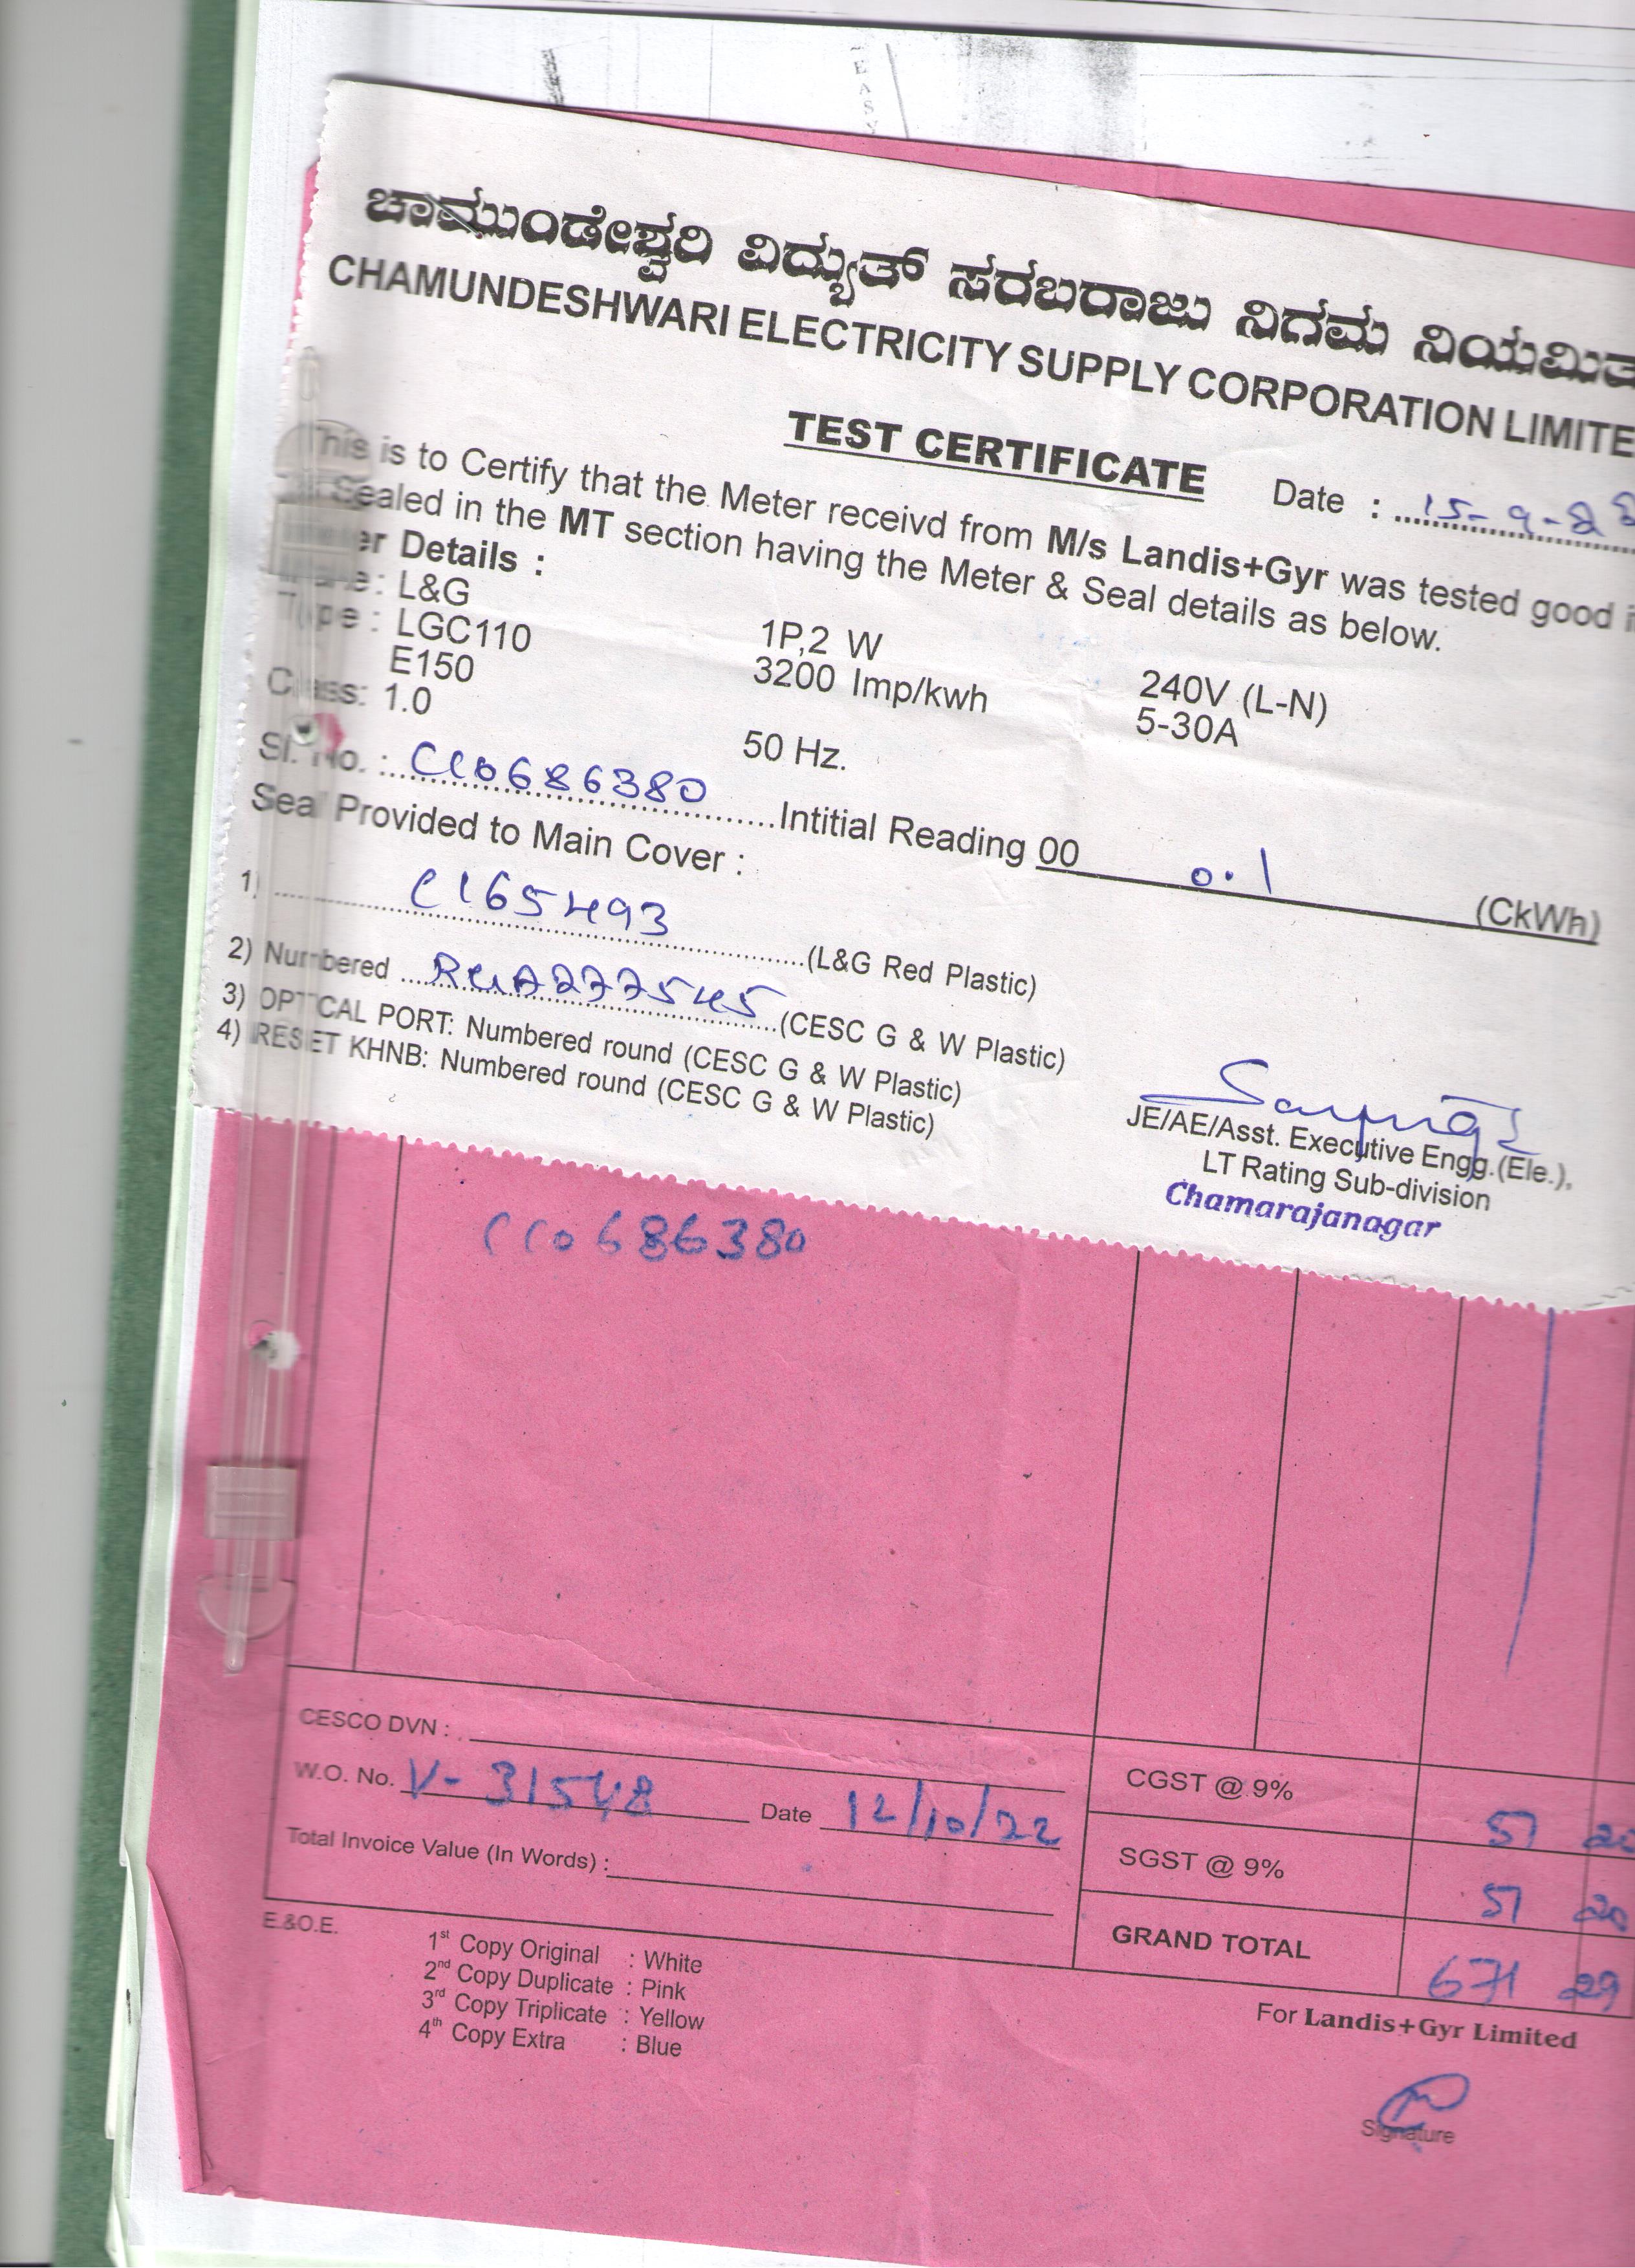 EASY
ಚಾಮುಂಡೇಶ್ವರಿ ವಿದ್ಯುತ್ ಸರಬರಾಜು ನಿಗಮ ನಿಯಮಿತ
CHAMUNDESHWARI ELECTRICITY SUPPLY CORPORATION LIMITE
TEST CERTIFICATE
Date : 15-9-22
This is to Certify that the Meter receivd from M/s Landis+Gyr was tested good
Sealed in the MT section having the Meter & Seal details as below.
Details :
L&G
Type : LGC110 1P,2 W 240V (L-N)
E150 3200 Imp/kwh 5-30A
Class: 1.0 50 Hz.
Sl. No. : CC0686380 Intitial Reading 00 0.1 (CkWh)
Seal Provided to Main Cover :
1) C165493 (L&G Red Plastic)
2) Numbered (CESC G & W Plastic)
3) OPTICAL PORT: Numbered round (CESC G & W Plastic)
4) RESET KHNB: Numbered round (CESC G & W Plastic)
JE/AE/Asst. Executive Engg.(Ele.),
LT Rating Sub-division
Chamarajanagar
CC0686380
CESCO DVN :
W.O. No. V-31548 Date 12/10/22
Total Invoice Value (In Words) :
CGST @ 9% 51 20
SGST @ 9% 51 20
GRAND TOTAL 671 29
E.&O.E.
1st Copy Original : White
2nd Copy Duplicate : Pink
3rd Copy Triplicate : Yellow
4th Copy Extra : Blue
For Landis+Gyr Limited
Signature